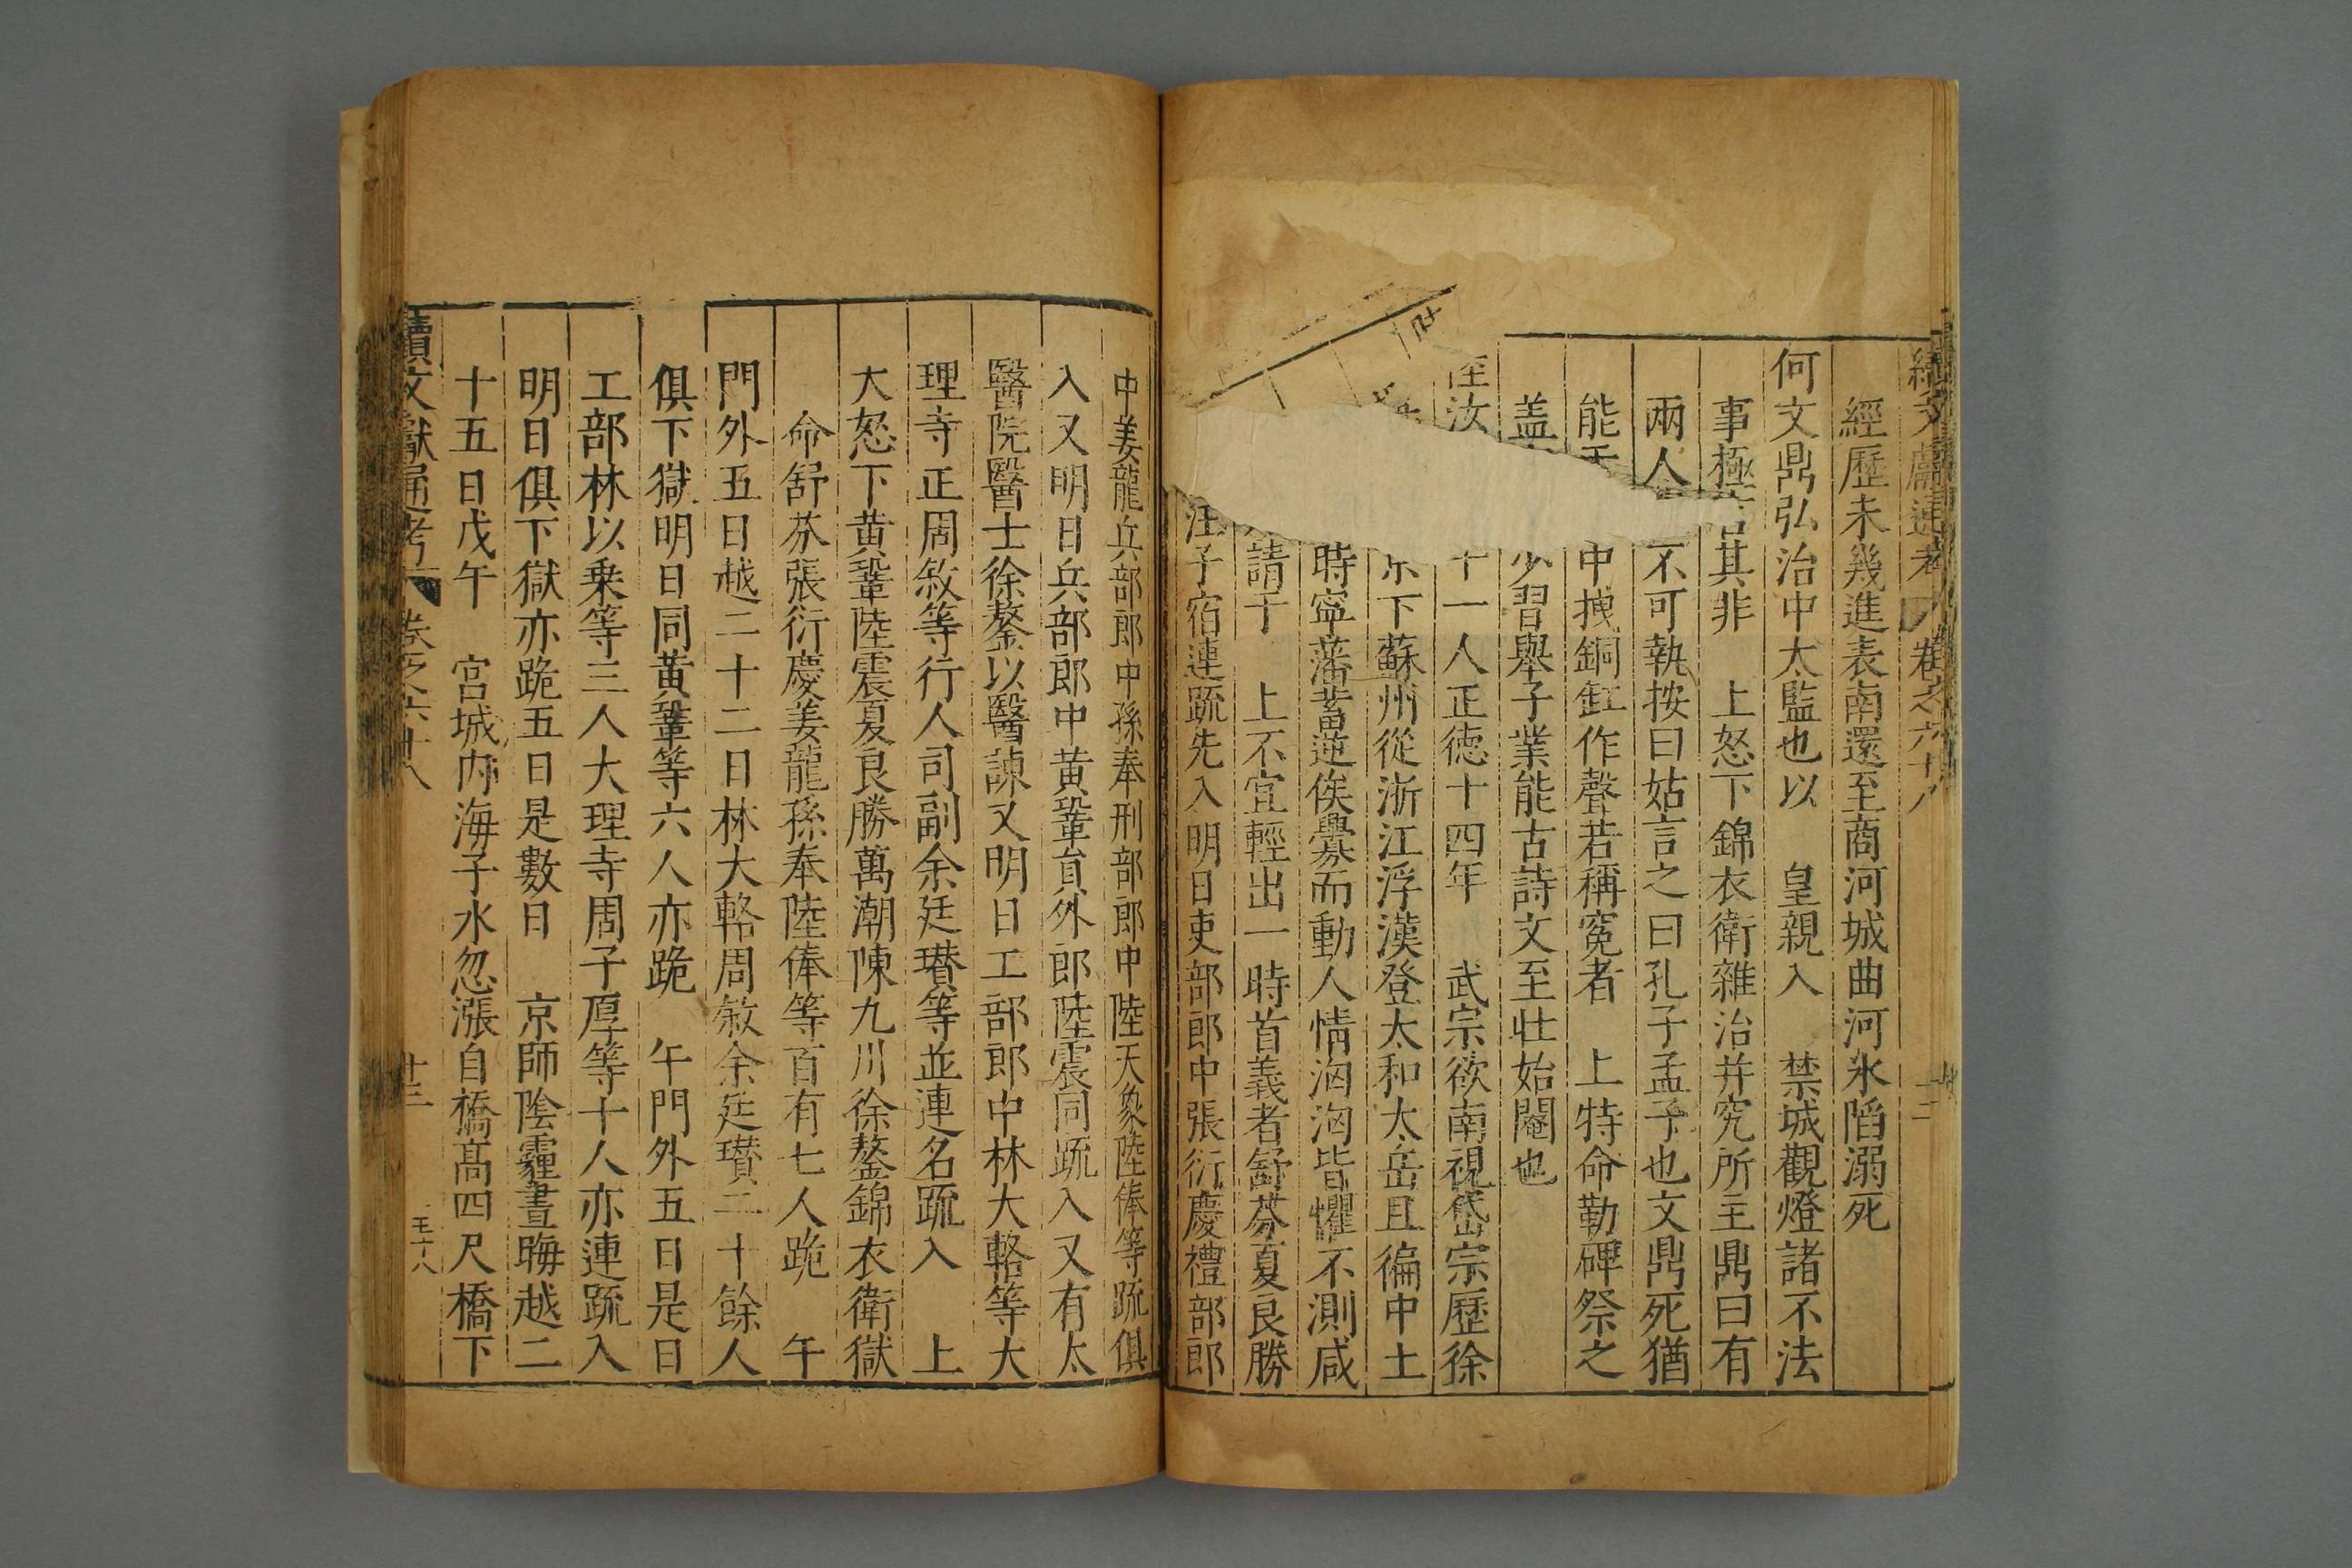 續文獻通考 卷之六十八
經歷未幾進表南還至商河城曲河氷陷溺死
何文鼎弘治中太監也以 皇親入 禁城觀燈諸不法
事極言其非 上怒下錦衣衛雜治并究所主鼎曰有
兩人 不可執按曰姑言之曰孔子孟子也文鼎死猶
能 中拽銅缸作聲若稱寃者 上特命勒碑祭之
盖 少習舉子業能古詩文至壯始閹也
汝 十一人正德十四年 武宗欲南視岱宗歷徐
下蘇州從浙江浮漢登太和太岳且徧中土
時寧藩蓄逆俟釁而動人情洶洶皆懼不測咸
請于 上不宜輕出一時首義者舒芬夏良勝
汪子宿連疏先入明日吏部郎中張衍慶禮部郎
中姜龍兵部郎中孫奉刑部郎中陸天象陸俸等疏俱
入又明日兵部郎中黃鞏貟外郎陸震同疏入又有太
醫院醫士徐鏊以醫諫又明日工部郎中林大輅等大
理寺正周敘等行人司副余廷瓚等並連名疏入 上
大怒下黃鞏陸震夏良勝萬潮陳九川徐鏊錦衣衛獄
命舒芬張衍慶姜龍孫奉陸俸等百有七人跪 午
門外五日越二十二日林大輅周敘余廷瓚二十餘人
俱下獄明日同黃鞏等六人亦跪 午門外五日是日
工部林以乘等三人大理寺周子厚等十人亦連疏入
明日俱下獄亦跪五日是數日 京師陰霾晝晦越二
十五日戊午 宮城內海子水忽漲自橋高四尺橋下
續文獻通考 卷之六十八 廿三